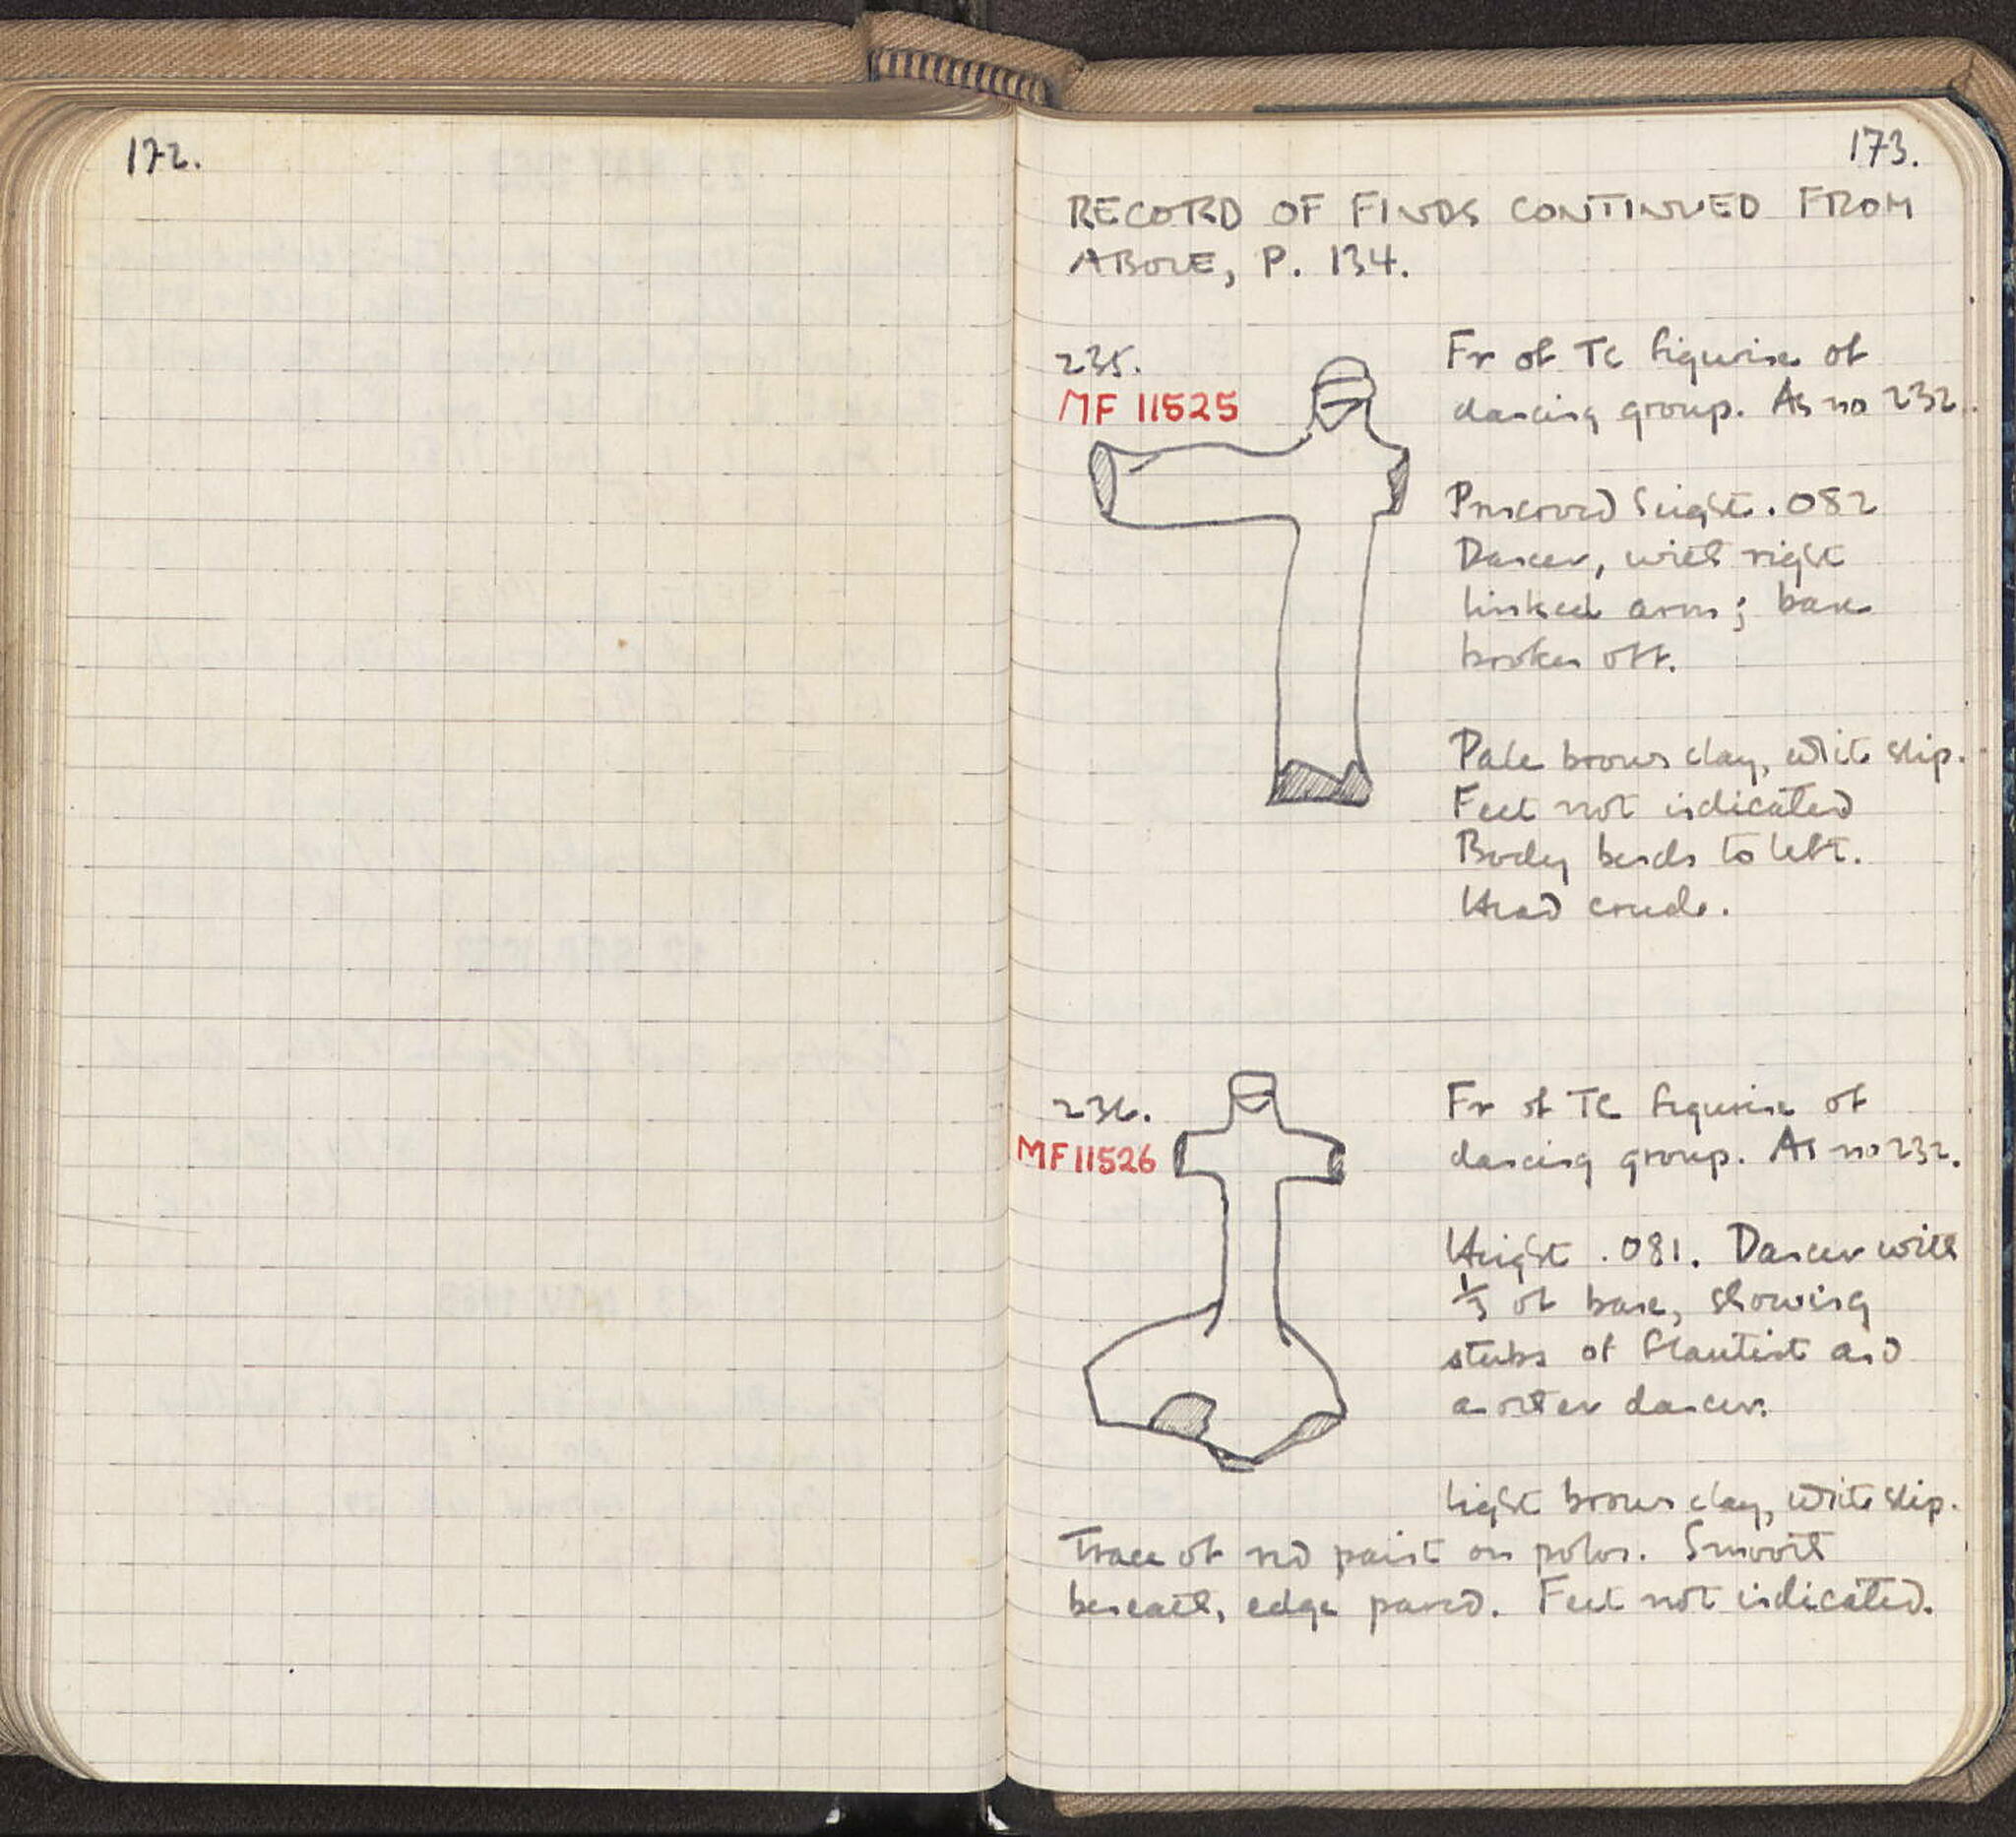 172.
173.
RECORD OF FINDS CONTINUED FROM
ABOVE, P. 134.
235.
MF 11525
Fr of TC figurine of
dancing group. As no 232.
Preserved height .082
Dancer, with right
linked arm; base
broken off.
Pale brown clay, white slip.
Feet not indicated
Body bends to left.
Head crude.
236.
MF 11526
Fr of TC figurine of
dancing group. As no 232.
Height .081. Dancer with
1/3 of base, showing
stubs of flautist and
another dancer.
Light brown clay, white slip.
Trace of red paint on polos. Smooth
beneath, edge pared. Feet not indicated.